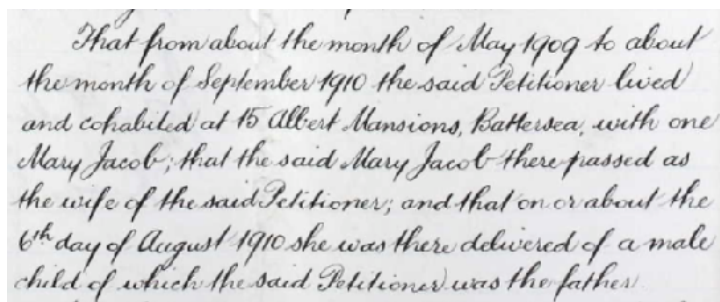 That from about the month of May 1909 to about
the month of September 1910 the said Petitioner lived
and cohabited at 15 Albert Mansions, Battersea, with one
Mary Jacob; that the said Mary Jacob there passed as
the wife of the said Petitioner; and that on or about the
6th day of August 1910 she was there delivered of a male
child of which the said Petitioner was the father